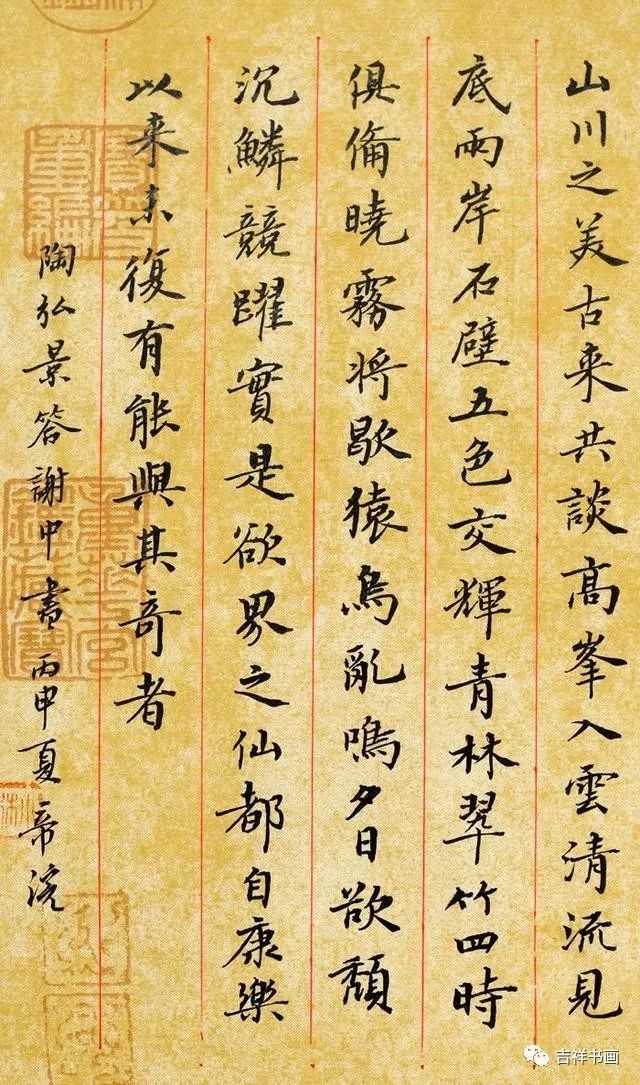 山川之美古来共談高峯入雲清流見
底兩岸石壁五色交輝青林翠竹四時
俱俻曉霧将歇猿鳥亂鳴夕日欲頹
沉鱗競躍實是欲界之仙都自康樂
以来未復有能與其奇者
陶弘景答謝中書丙申夏帝
吉祥书画